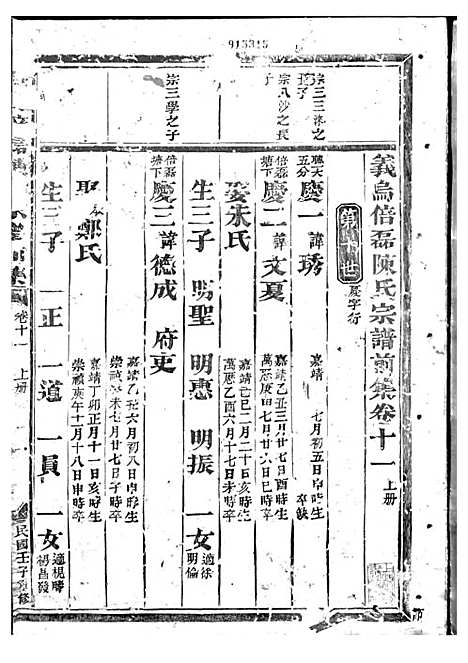 913315
義烏倍磊陳氏宗譜前集卷十一 上册
慶字行
宗三三
之子
聽天五分 慶一 諱琇 嘉靖 七月初五日申時生 卒缺
宗八沙之長子
倍磊塘下 慶二 諱文夏 嘉靖乙丑三月廿七日酉時生
萬曆庚田七月廿六日亥時卒
娶朱氏 嘉靖己巳二月二十日亥時生
萬曆乙酉六月十七日子時卒
生三子 明聖 明惠 明振 一女 適徐明倫
宗三學之子
倍磊塘下 慶三 諱德成 府吏 嘉靖乙丑六月初八日申時生
崇禎 未七月廿七日子時卒
娶 鄭氏 嘉靖丁卯正月十一日亥時生
崇禎庚午十二月十八日申時卒
生三子 一正 一道 一員 一女 適 楊昌發
卷十一 上册
民國壬子 修